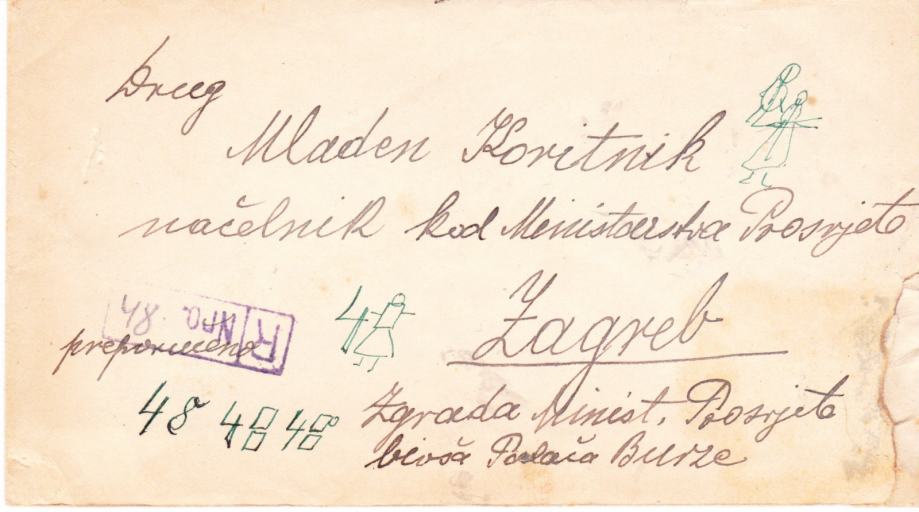 Drug
Mladen Koritnik
načelnik kod Ministarstva Prosvjete
Zagreb
R
preporučeno
48 48 48
4
Zgrada Minist. Prosvjete
bivša Palača Burze